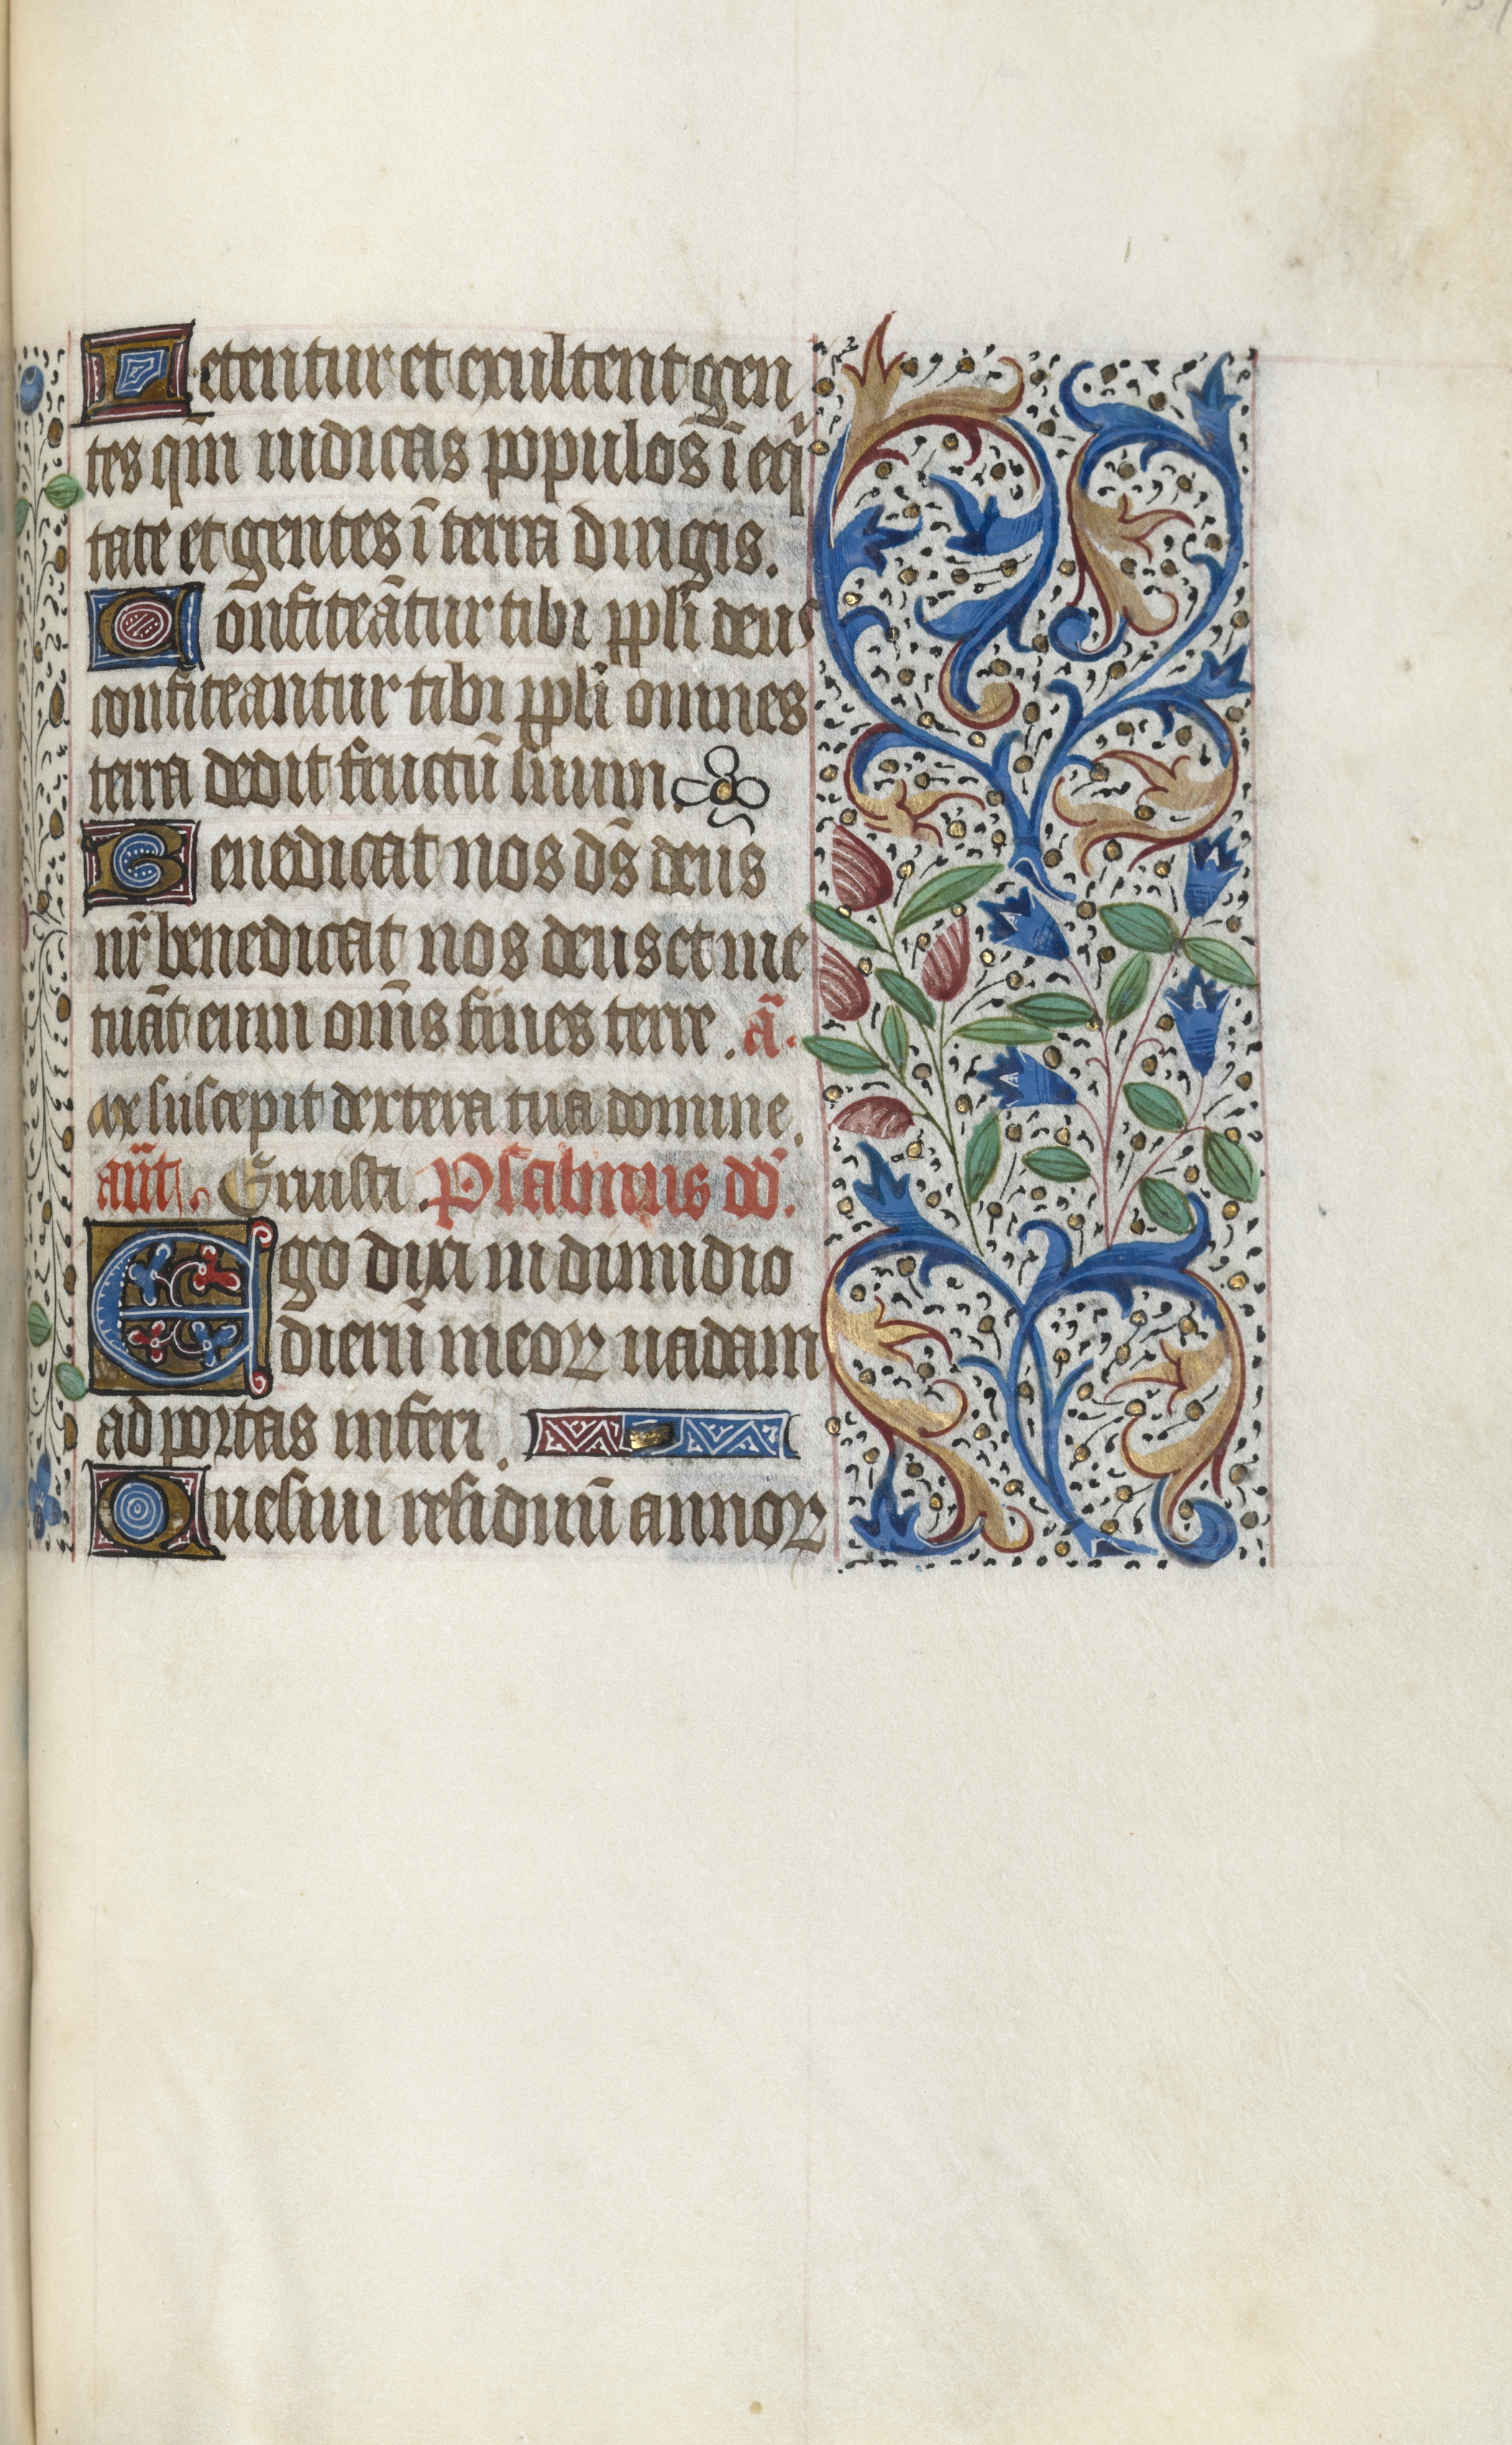 Letentur et exultent gen
tes qm̄ iudicas populos ī eq̇
tate et gentes ī terra dirigis.
Confiteātur tibi ppli deus
confiteantur tibi ppli omnes
terra dedit fructū suum.
Benedicat nos ds̄ deus
nr̄ benedicat nos deus et me
tuāt eum om̄s fines terre. ā.
Me suscepit dextera tua domine.
ant̄. Eruisti. Psalmus dd̄.
Ego dixi in dimidio
dierū meoꝝ uadam
ad portas inferi.
Quesiui residuū annoꝝ